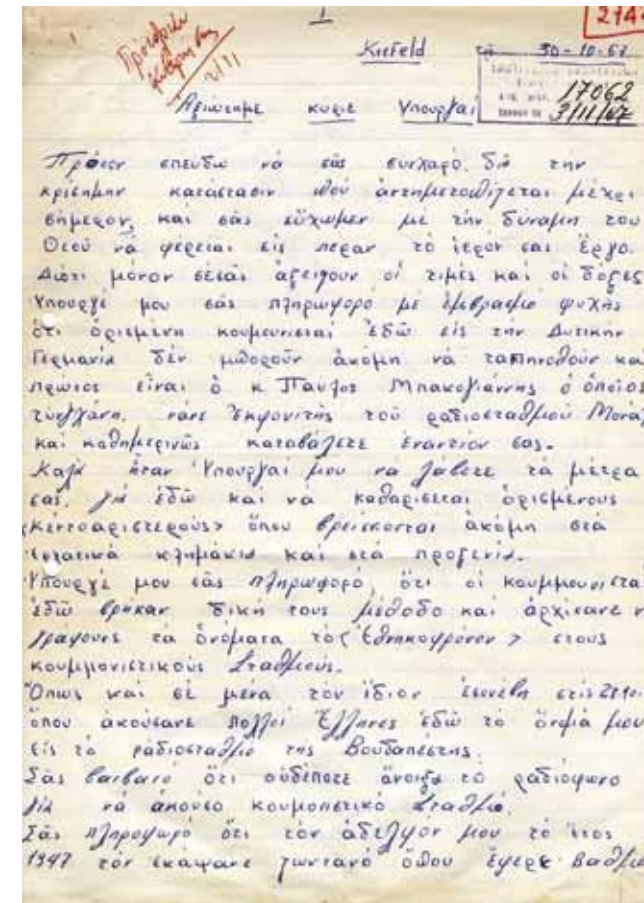 1
214
Προεδρίαν
Κυβερνήσεως
2/11
Krefeld τη 30-10-67
17062
3/11/67
Αξιώτημε κύριε Υπουργαί
Πρότον σπεύδω νά σάς συνχαρό διά την
κρισημην κατάστασιν πού άντημετοπίζεται μέχρι
σήμερον, και σάς εύχωμεν με την δύναμη του
Θεού νά φέρεται εις περαν τό ιερόν σας έργο.
Διότι μόνον σεσάς αξειζουν οί τιμές και οί δοξες
Υπουργέ μου σάς πληρωφορό με εμβραφια ψυχής
ότι όρισμένη κουμουνισται έδώ εις την Δυτικην
Γερμανία δέν μπορούν άκομη νά ταπηνοθούν και
πρώτος είναι ό κ Παύλος Μπακογιάννης ό όποίος
τυγχάνη νάνε έκφονιτής τού ραδιοσταθμιού Μονα
και καθημερινώς καταβάλετε έναντιόν σας.
Καλά ήταν Υπουργαί μου νά λάβετε τά μέτρα
σας. γιά έδώ και νά καθαρισεται όρισμένους
<κεντοαριστερους> όπου βρεισκονται άκομη στά
έργατικά κλημάκια και στά προξενία.
Υπουργέ μου σάς πληρωφορό ότι οί κουμμουνιστα
έδώ βρηκαν δική τους μέθοδο και άρχισανε ν
γραφουνε τα όνοματα τό< έθνηκοφρόνον > στους
κουμμονιστικούς Σταθμιούς.
Όπως και σέ μενα τόν ίδιον έσυνέβη στις 2810
όπου άκούσανε πολλοί Έλληνες έδώ τό όνομά μου
εις τό ράδιοσταθμο της Βουδαπέστης.
Σάς βαιβαιό ότι ουδέποτε άνοιξα τό ραδιόφωνο
γιά νά άκουσο κουμονιστικό Σταθμό.
Σάς πληροφωρό ότι τόν άδελφον μου τό έτος
1947 τόν έκάψανε ζωντανό όπου έφερε βαθμό